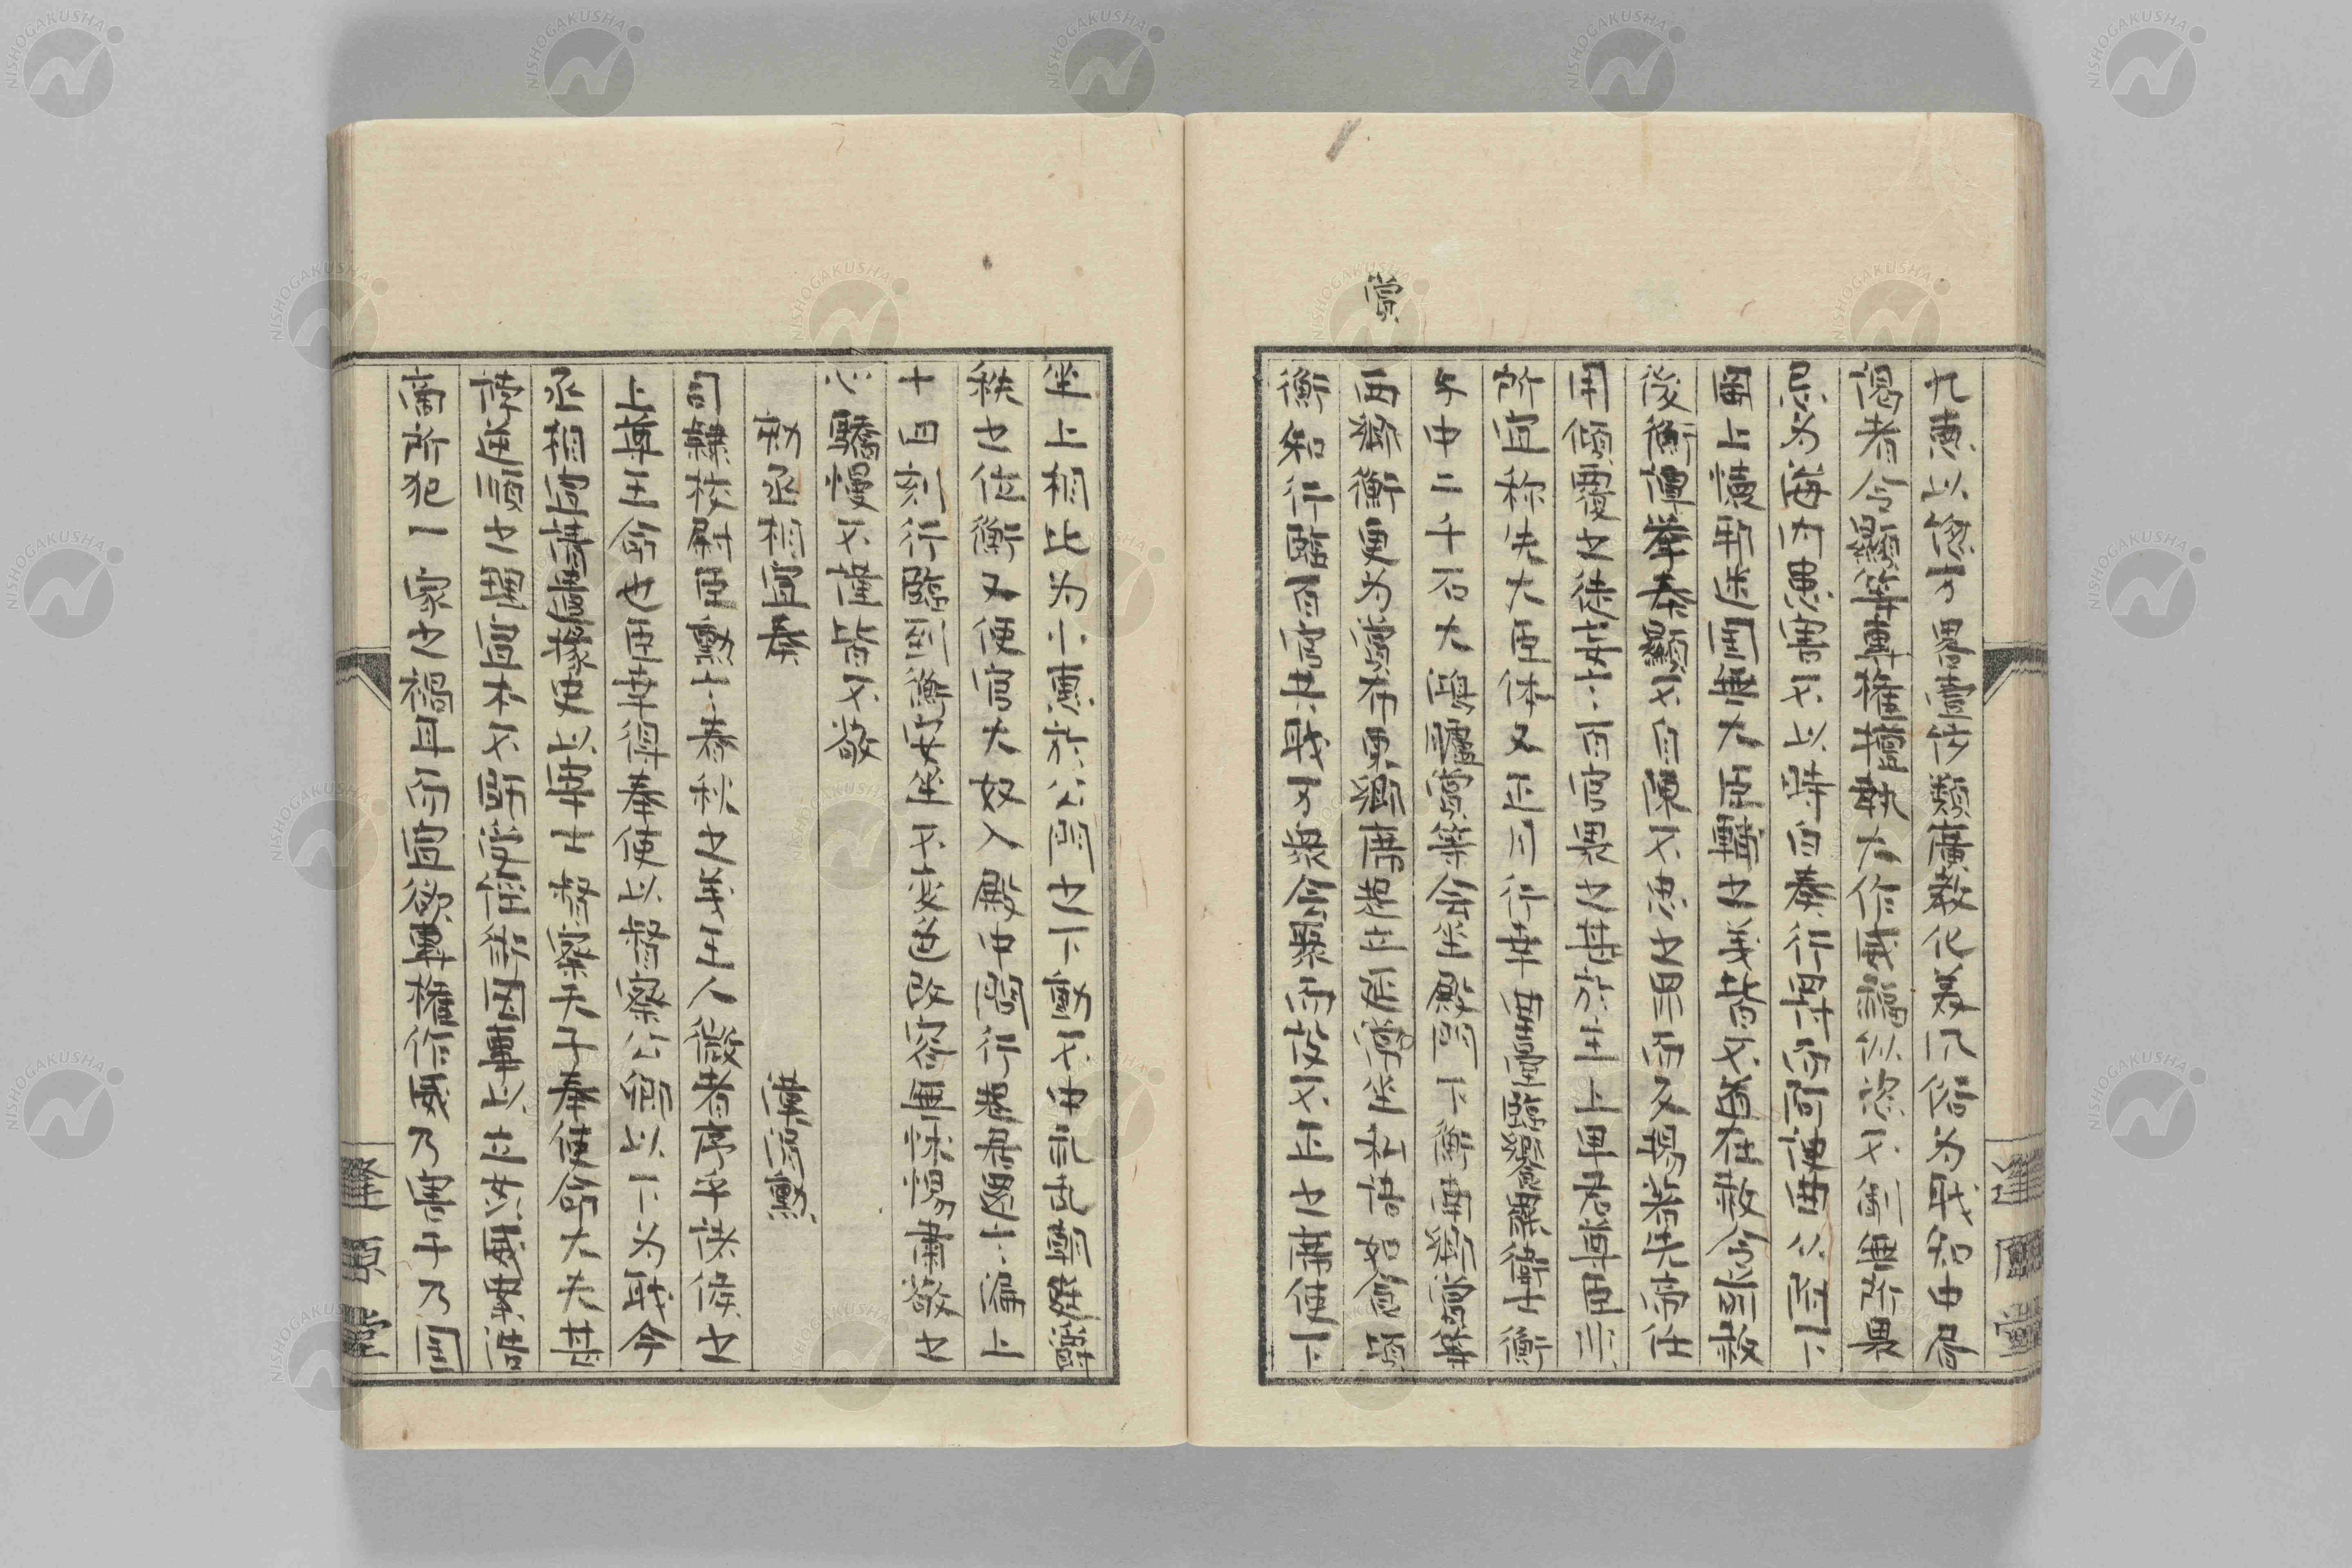 賞
九惪以總方畧壹統類廣教化美風俗为職知中書
謁者令顯等專權擅埶大作威福縱恣不制無所畏
忌为海內患害不以時白奏行罰而阿諛曲從附下
罔上懷邪迷囯無大臣輔政之義皆不道在赦令前赦
後衡譚舉奏顯不自陳不忠之罪而反揚著先帝任
用傾覆之徒妄言百官畏之甚於主上卑君尊臣非
所宜称失大臣体又正月行幸曲臺臨饗罷衛士衡
与中二千石大鴻臚賞等会坐殿門下衡南鄉賞等
西鄉衡更为賞布東鄉席起立延賞坐私語如食頃
衡知行臨百官共職万眾会聚而設不正之席使下
坐上相比为小惠於公門之下動不中礼乱朝廷爵
秩之位衡又使官大奴入殿中問行起居還言漏上
十四刻行臨到衡安坐不変色改容無怵惕肅敬之
心驕慢不謹皆不敬
劾丞相宣奏　漢涓勳
司隸校尉臣勳言春秋之義王人微者序乎諸侯之
上尊王命也臣幸得奉使以督察公卿以下为職今
丞相宣請遣掾史以宰士督察天子奉使命大夫甚
誖逆順之理宣本不師受經術因事以立姦威案浩
商所犯一家之禍耳而宣欲專權作威乃害于乃囯